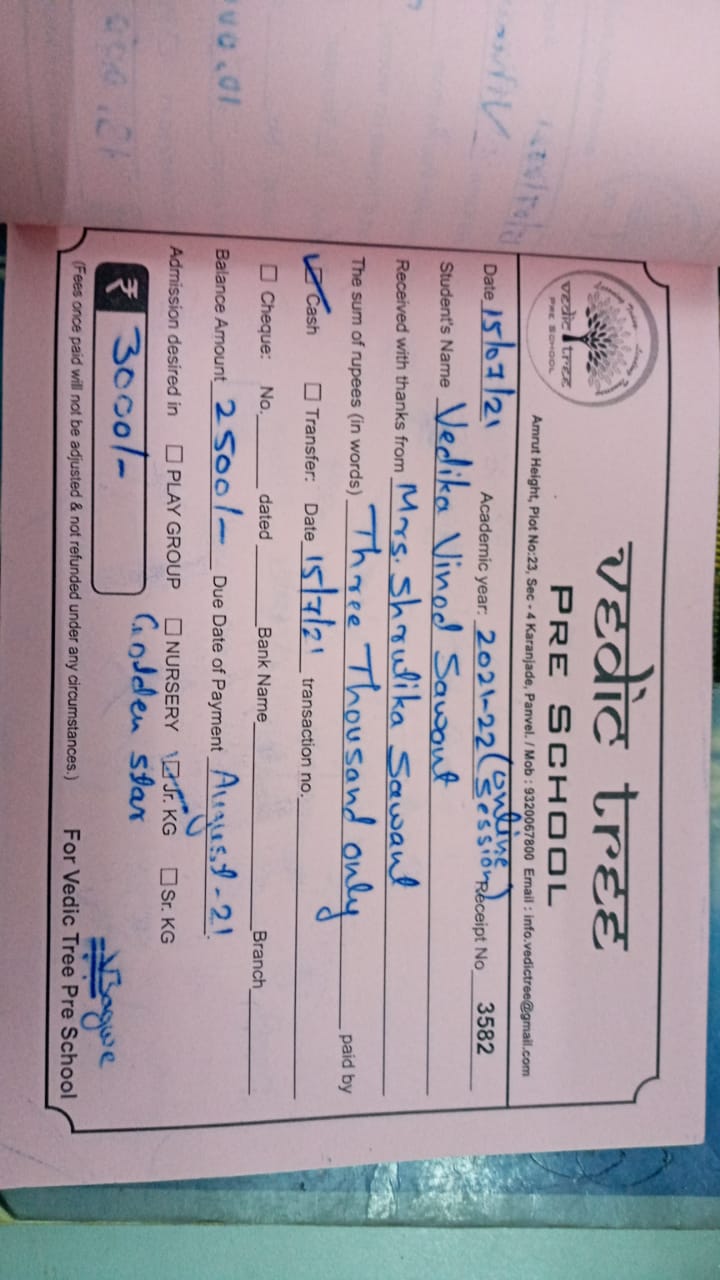 vedic tree
PRE SCHOOL
vedic tree
PRE SCHOOL
Amrut Height, Plot No:23, Sec - 4 Karanjade, Panvel. / Mob : 9320067800 Email : info.vedictree@gmail.com
Date 15/07/21 Academic year: 2021-22 (online session) Receipt No 3582
Student's Name Vedika Vinod Sawant
Received with thanks from Mrs. Shrulika Sawant
The sum of rupees (in words) Three Thousand only paid by
☑ Cash ☐ Transfer: Date 15/7/21 transaction no.
☐ Cheque: No. dated Bank Name Branch
Balance Amount 2500/- Due Date of Payment August-21.
Admission desired in ☐ PLAY GROUP ☐ NURSERY ☑ Jr. KG ☐ Sr. KG
₹ 3000/- Golden star
(Fees once paid will not be adjusted & not refunded under any circumstances.) For Vedic Tree Pre School